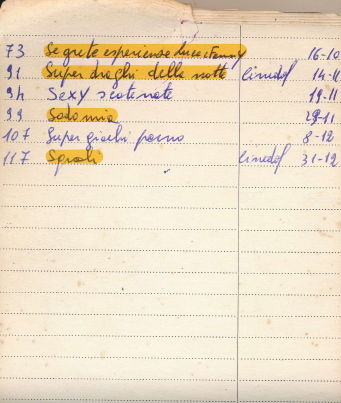 73 Segrete esperienze Luca e Fanny 16-10
91 Super droghi delle notte cinedof 14-11
94 Sexy scatenate 19-11
99 Sodomia 29-11
107 Super giochi porno 8-12
117 cinedof 31-12